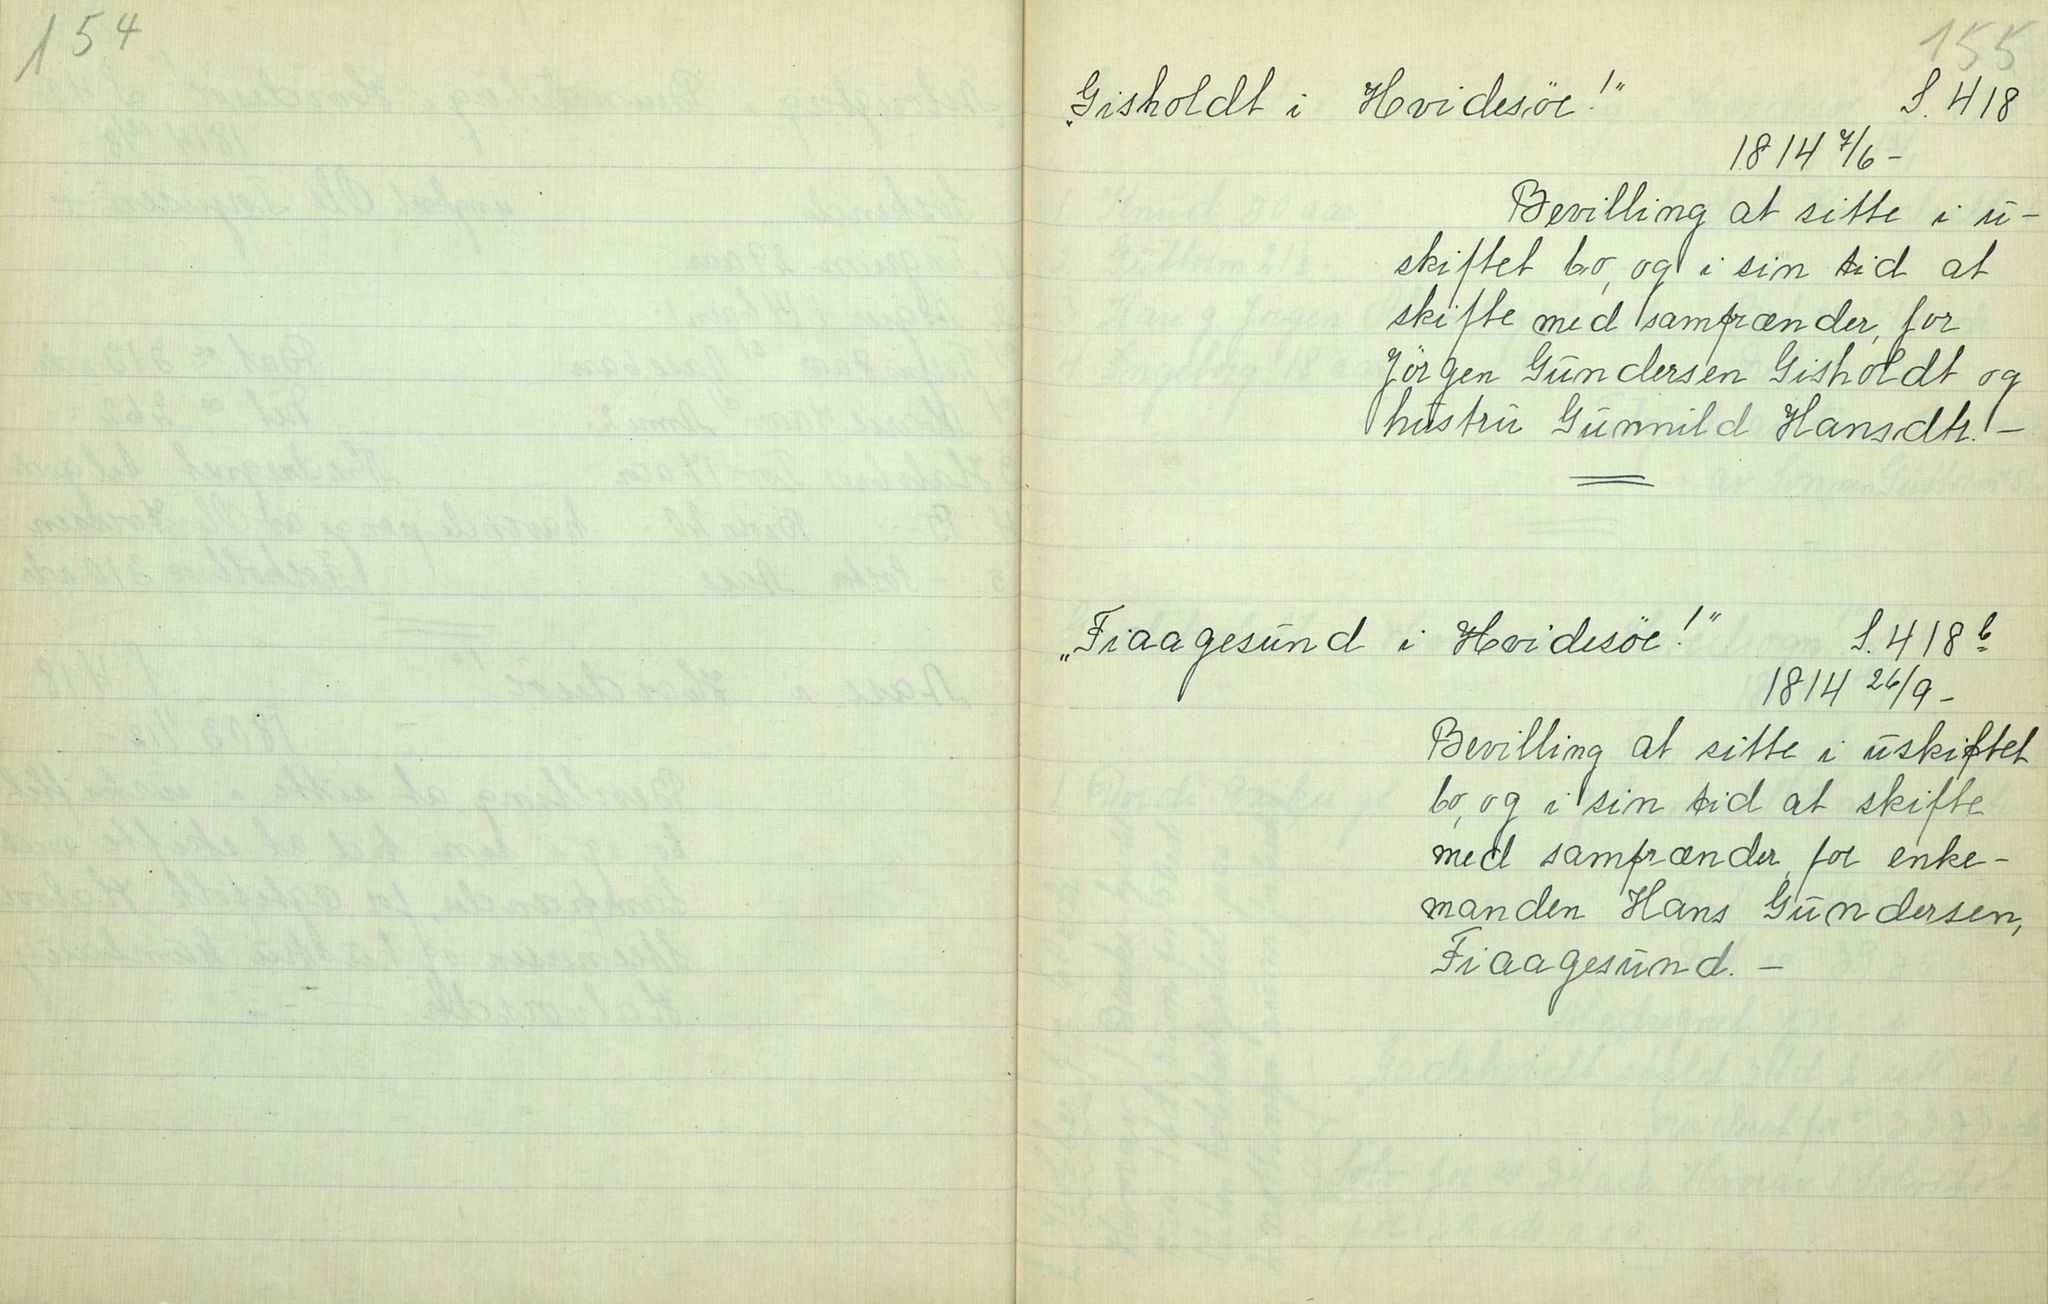 154
155
„Gisholdt i Hvidesöe!" S. 418
1814 7/6 –
Bevilling at sitte i u-
skiftet bo, og i sin tid at
skifte med samfrænder, for
Jörgen Gundersen Gisholdt og
hustru Gunnild Hansdtr. –
„Fiaagesund i Hvidesöe!" S. 418 b
1814 26/9 –
Bevilling at sitte i uskiftet
bo, og i sin tid at skifte
med samfrænder, for enke-
manden Hans Gundersen,
Fiaagesund. –